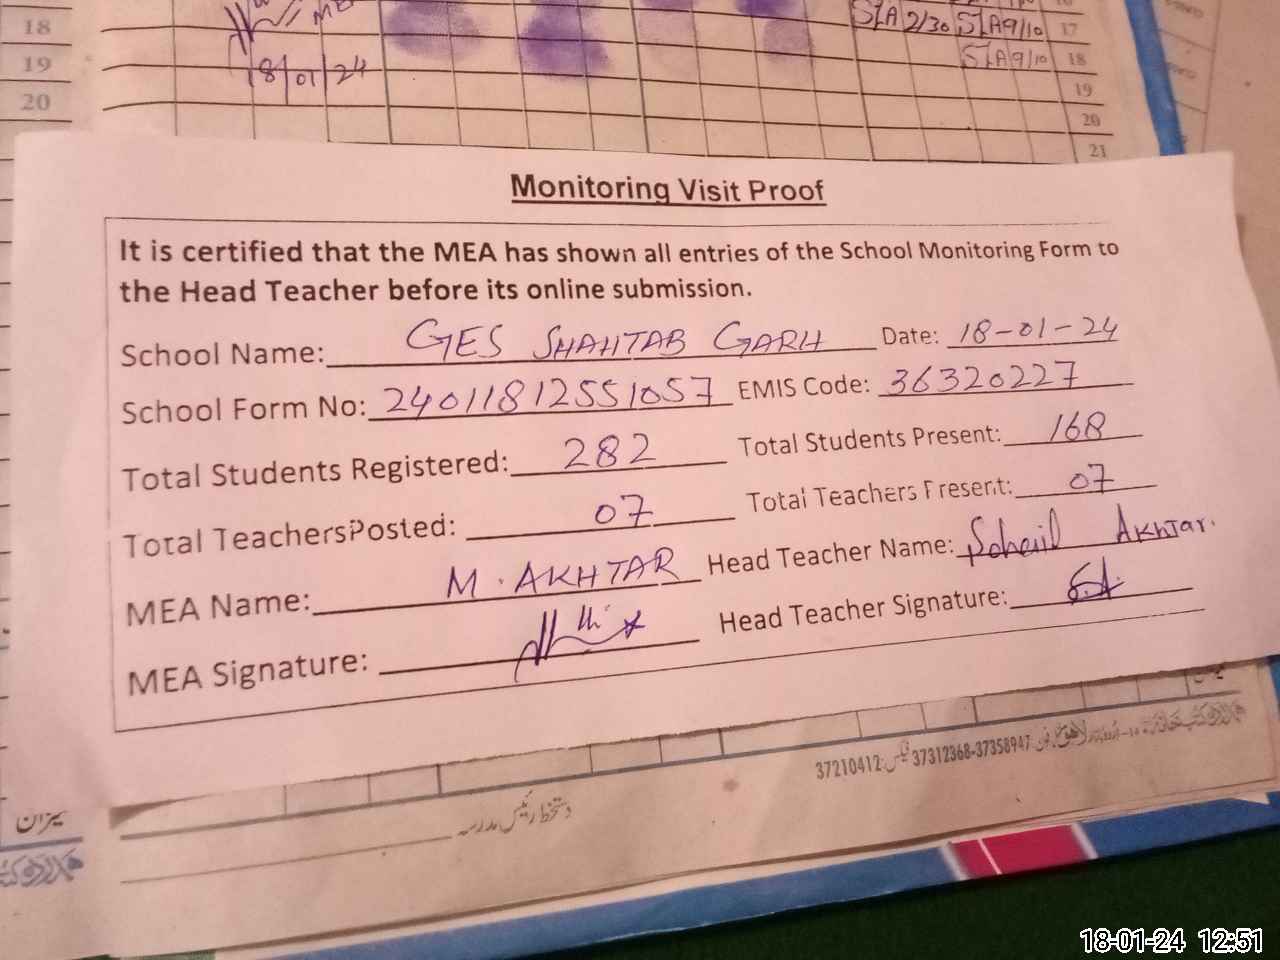 18
19
20
18/01/24
S/A 2/30 S/A 9/10 17
S/A 9/10 18
19
20
21
Monitoring Visit Proof
It is certified that the MEA has shown all entries of the School Monitoring Form to
the Head Teacher before its online submission.
School Name: GES SHAHTAB GARH Date: 18-01-24
School Form No: 24011812551057 EMIS Code: 36320227
Total Students Registered: 282 Total Students Present: 168
Total TeachersPosted: 07 Total Teachers Present: 07
MEA Name: M. AKHTAR Head Teacher Name: Sohail Akhtar.
MEA Signature: Head Teacher Signature: S.A.
37210412 فیکس: 37312368-37358947 فون
میزان
دستخط رئیس مدرسہ
18-01-24 12:51